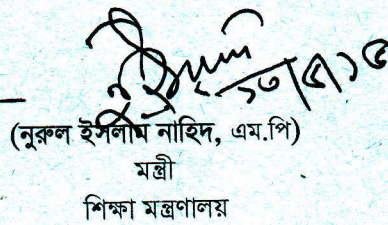 (নুরুল ইসলাম নাহিদ, এম.পি)
মন্ত্রী
শিক্ষা মন্ত্রণালয়